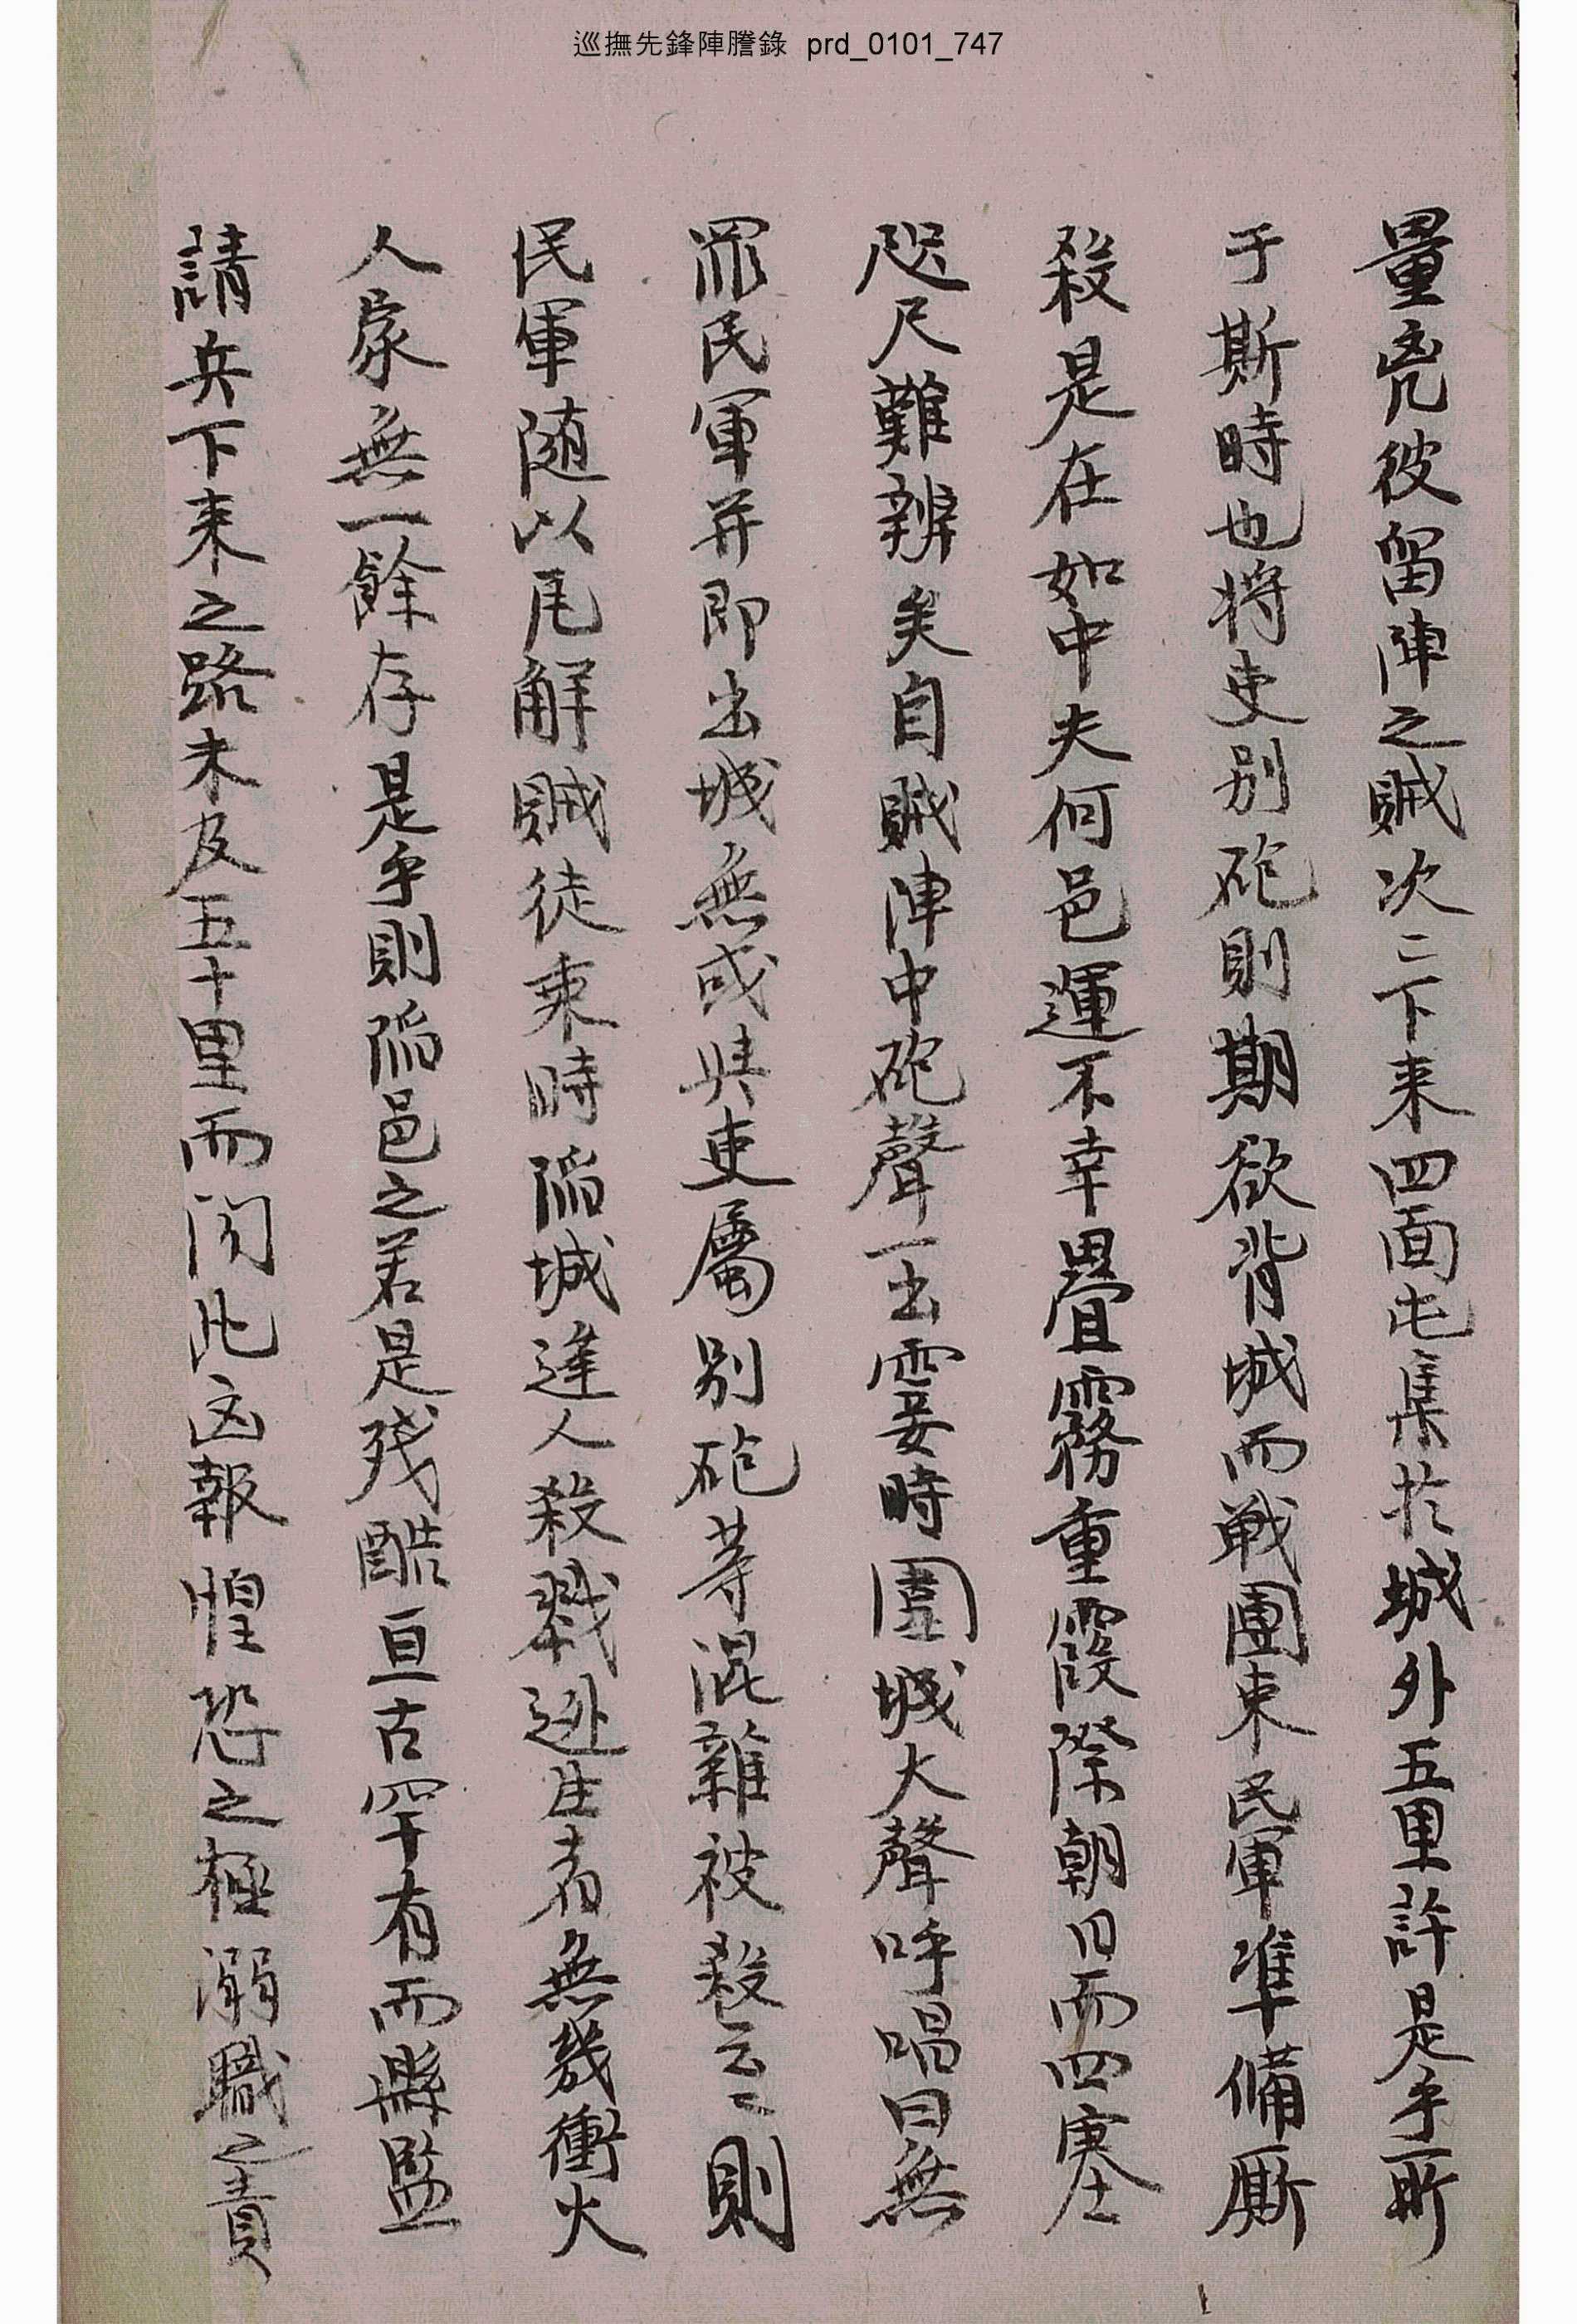 巡撫先鋒陣謄錄 prd_0101_747
量兇彼留陣之賊次〻下来四面屯集於城外五里許是乎所
于斯時也將吏別砲則期欲背城而戦團束民軍準備厮
殺是在如中夫何邑運不幸疊霧重霞際朝日而四塞
咫尺難辨矣自賊陣中砲聲一出霎時圍城大聲呼唱曰無
罪民軍并即出城無或與吏屬別砲等混雜被殺云〻則
民軍随以瓦解賊徒乘時陷城逢人殺戮逃生者無幾衝火
人家無一餘存是乎則陷邑之若是残酷亘古罕有而縣監
請兵下来之路未及五十里而聞此凶報惶恐之極溺職之責